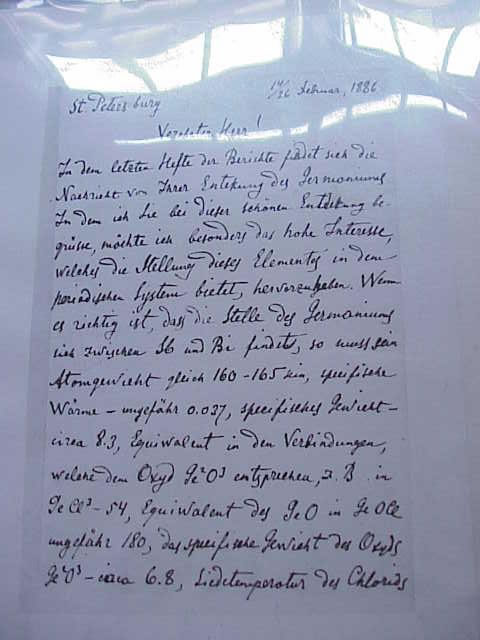 St. Petersburg 14/26 Februar, 1886
Verehrter Herr!
In dem letzten Hefte der Berichte findet sich die
Nachricht von Ihrer Entdekung des Germaniums
In dem ich Sie bei dieser schönen Entdekung be-
grüsse, möchte ich besonders das hohe Interesse,
welches die Stellung dieses Elementes in dem
periodischen System bietet, hervorzuheben. Wenn
es richtig ist, dass die Stelle des Germaniums
sich zwischen Sb und Bi findet, so muss sein
Atomgewicht gleich 160-165 sein, specifische
Wärme - ungefähr 0.037, specifisches Gewicht -
circa 8.3, Equivalent in den Verbindungen,
welche dem Oxyd Ge²O³ entsprechen, z. B. in
GeCl³ - 54, Equivalent des GeO in GeOCl
ungefähr 180, das specifische Gewicht des Oxyds
Ge²O³ - circa 6.8, Siedetemperatur des Chlorids